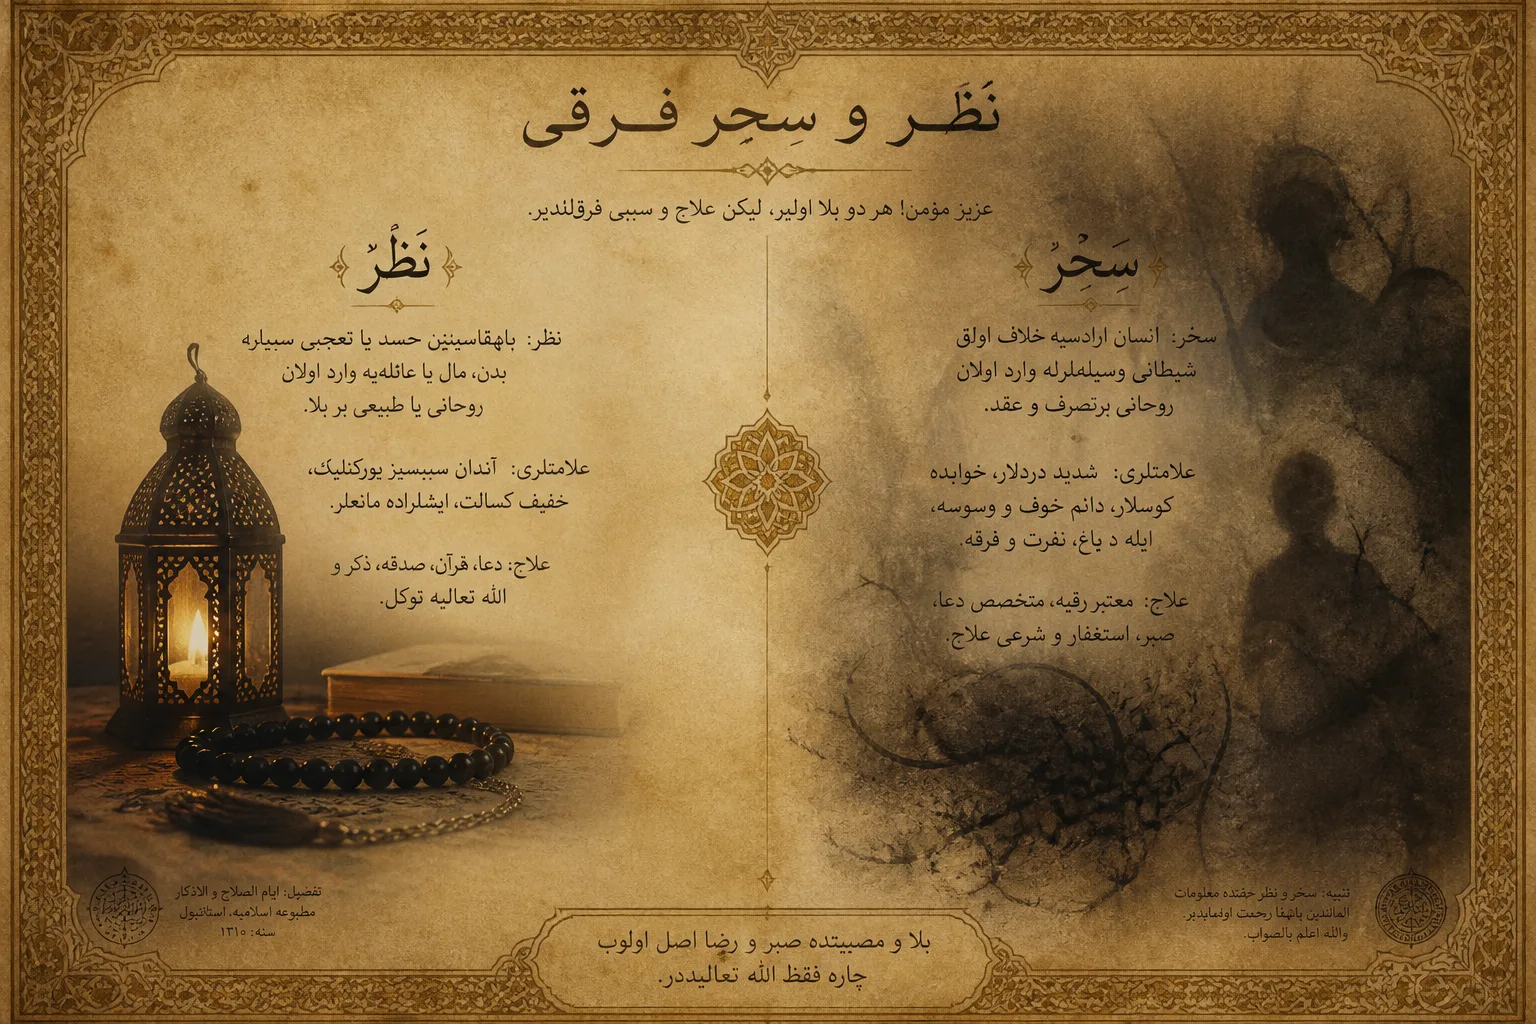 نَظَر و سِحِر فرقی
عزیز مؤمن! هر دو بلا اولیر، لیکن علاج و سببی فرقلندیر.
سَحِْرٌ
سخر: انسان ارادسیه خلاف اولق
شیطانی وسیله‌لرله وارد اولان
روحانی برتصرف و عقد.
علامتلری: شدید دردلار، خوابده
کوسلار، دانم خوف و وسوسه،
ایله د یاغ، نفرت و فرقه.
علاج: معتبر رقیه، متخصص دعا،
صبر، استغفار و شرعی علاج.
نَظًرٌ
نظر: حسد یا تعجبی سبیلره
بدن، مال یا عائله‌یه وارد اولان
روحانی یا طبیعی بر بلا.
علامتلری: آندان سببسیز یورکنلیك،
خفیف کسالت، ایشلراده مانعلر.
علاج: دعا، قرآن، صدقه، ذکر و
الله تعالیه توکل.
تنبیه: سخر و نظر حقنده معلومات
رحمت
والله اعلم بالصواب.
تفضیل: ایام الصلاح و الاذکار
مطبوعه اسلامیه، استانبول
سنه: ١٣١٠
بلا و مصیبتده صبر و رضا اصل اولوب
چاره فقظ الله تعالیددر.